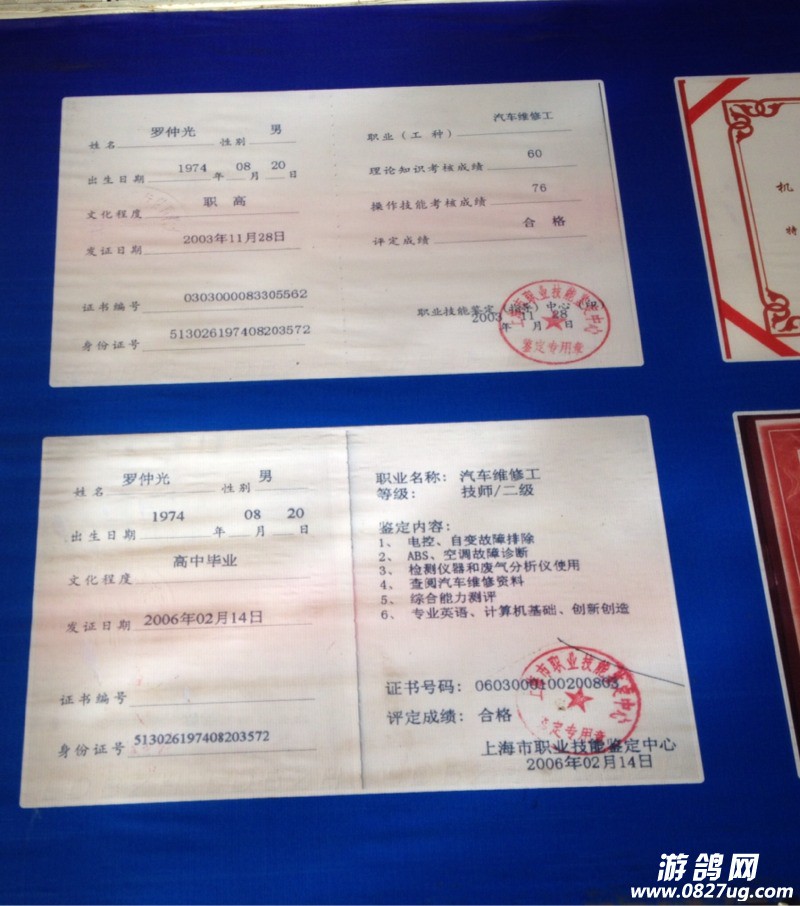 姓名 罗仲光 性别 男
出生日期 1974 年 08 月 20 日
文化程度 职高
发证日期 2003年11月28日
证书编号 0303000083305562
身份证号 513026197408203572
职业（工种） 汽车维修工
理论知识考核成绩 60
操作技能考核成绩 76
评定成绩 合格
职业技能鉴定（指导）中心（印）
2003 年 11 月 28 日
上海市职业技能鉴定中心
鉴定专用章
机
特
姓名 罗仲光 性别 男
出生日期 1974 年 08 月 20 日
文化程度 高中毕业
发证日期 2006年02月14日
证书编号
身份证号 513026197408203572
职业名称： 汽车维修工
等级： 技师/二级
鉴定内容：
1、 电控、自变故障排除
2、 ABS、空调故障诊断
3、 检测仪器和废气分析仪使用
4、 查阅汽车维修资料
5、 综合能力测评
6、 专业英语、计算机基础、创新创造
证书号码： 0603000100200803
评定成绩： 合格
上海市职业技能鉴定中心
鉴定专用章
上海市职业技能鉴定中心
2006年02月14日
游鸽网
www.0827ug.com